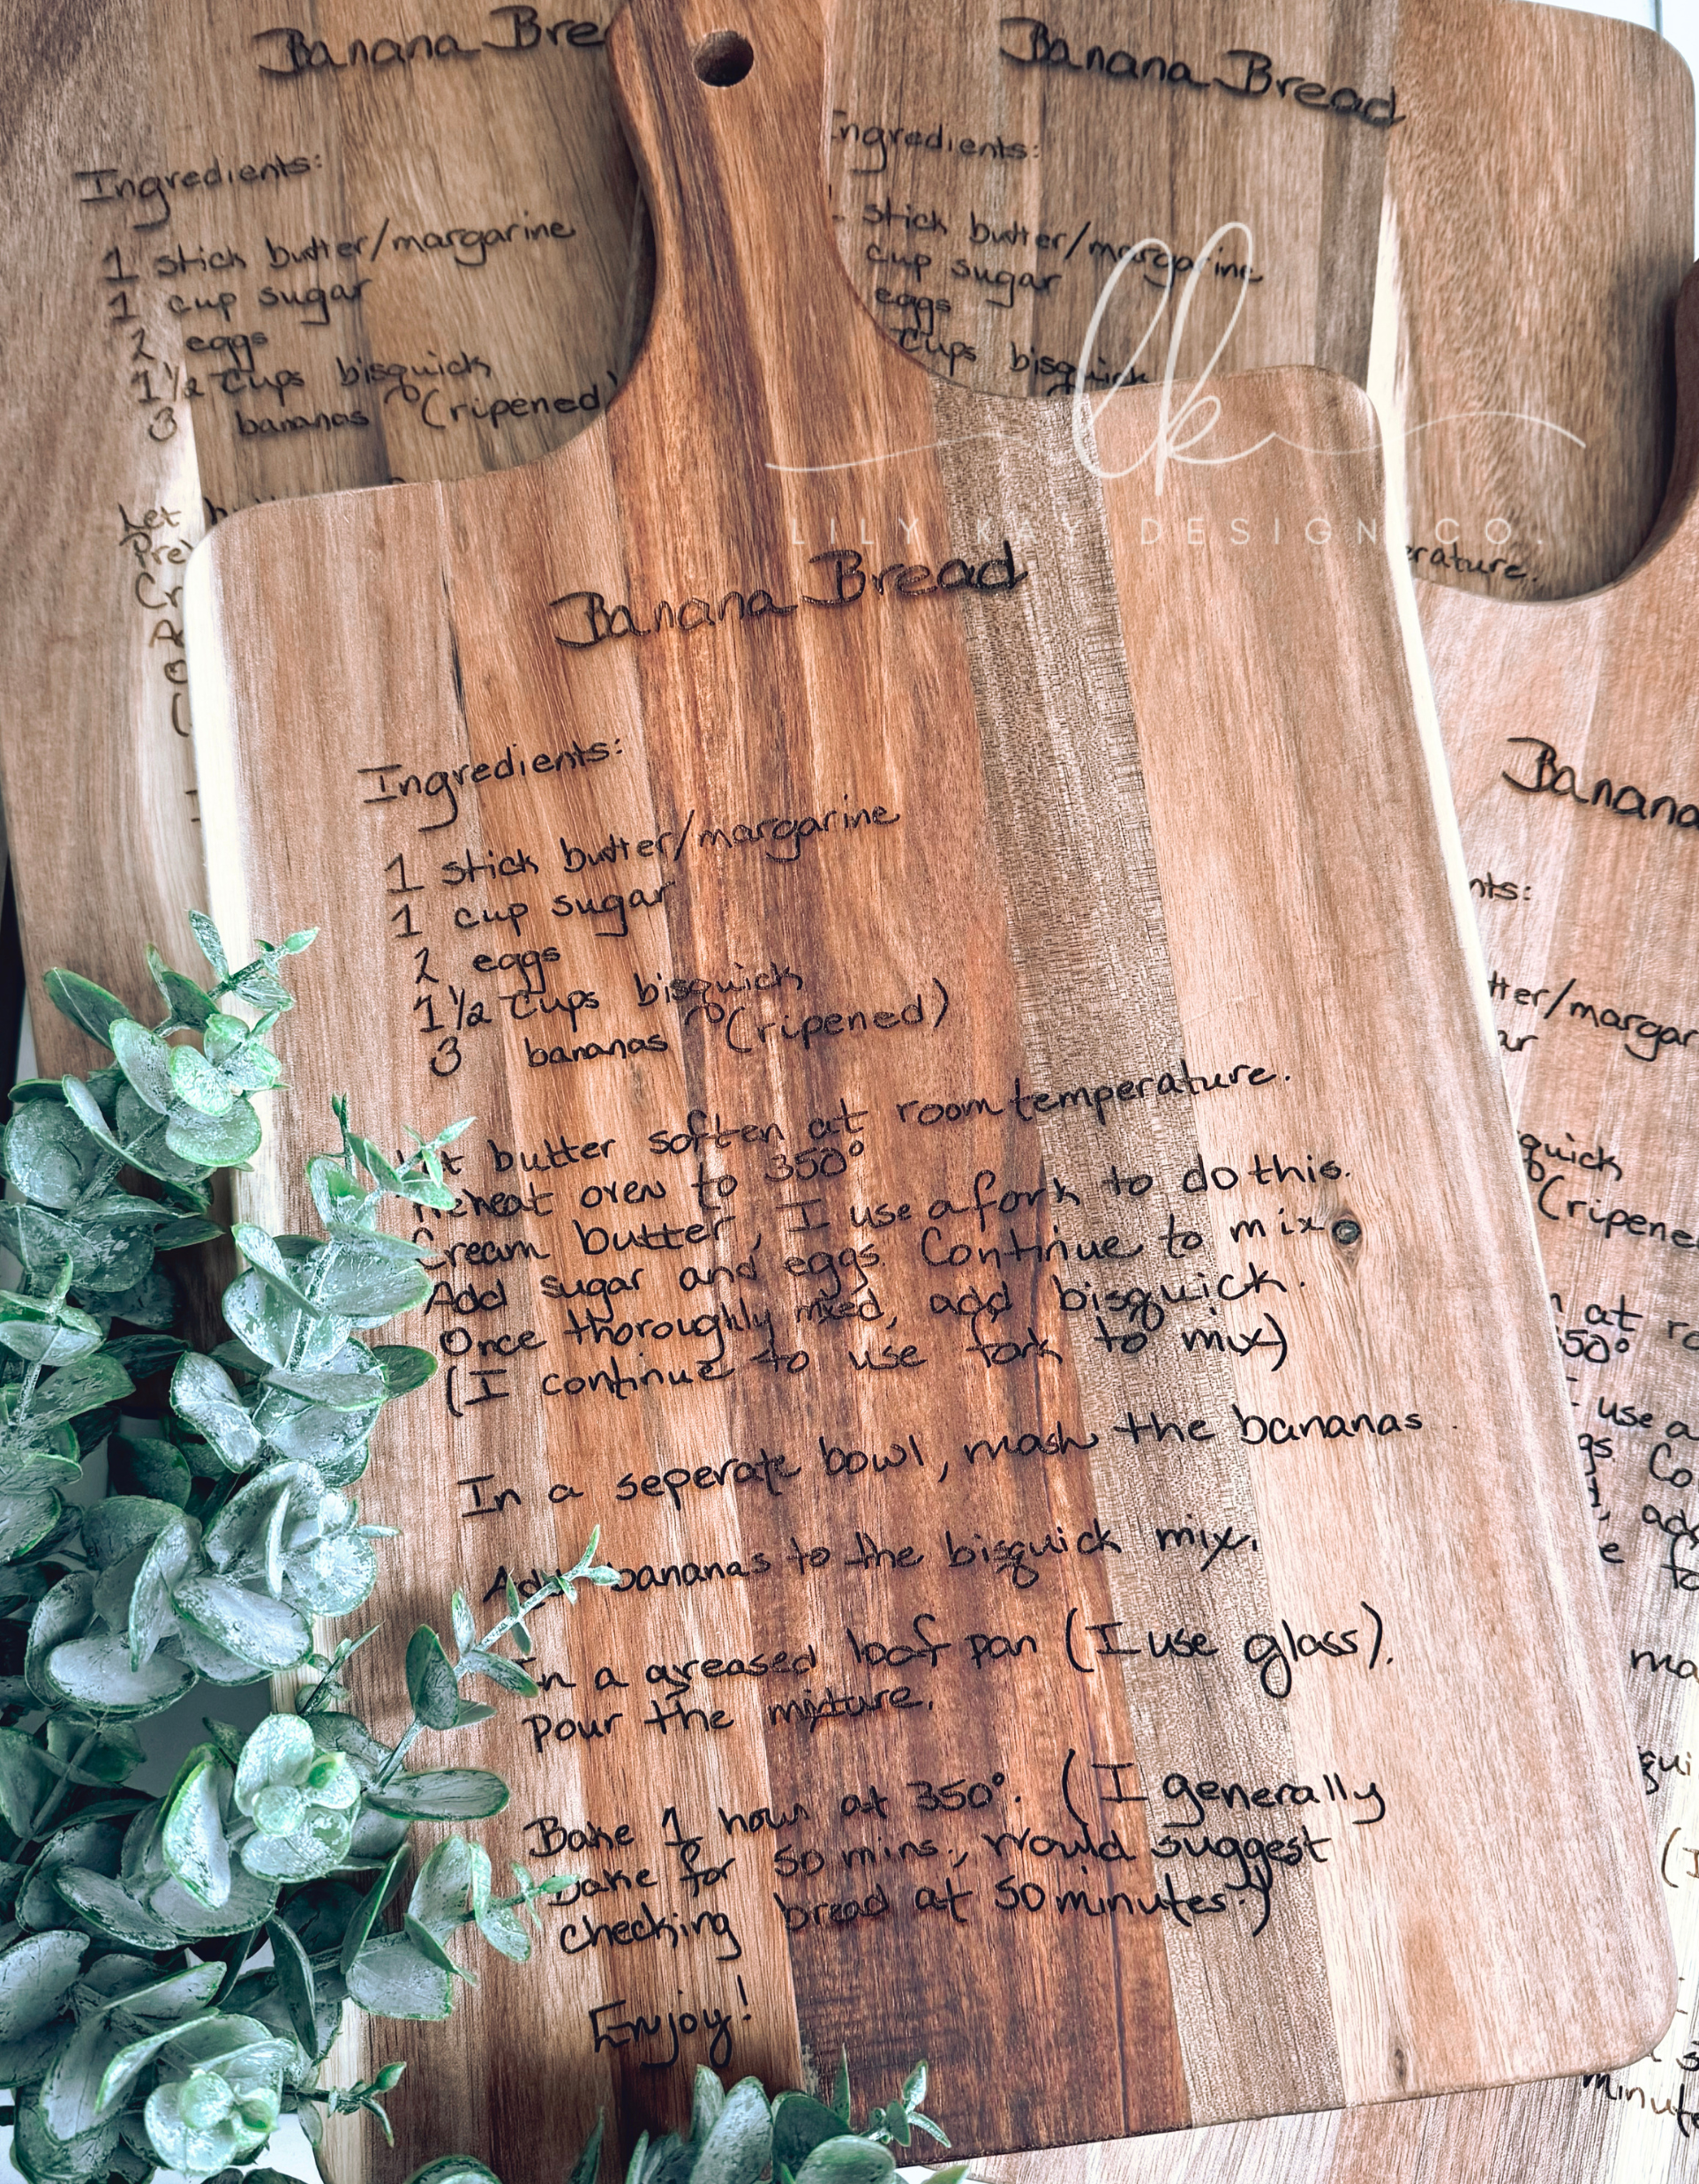 Banana Bre
Ingredients:
1 stick butter/margarine
1 cup sugar
2 eggs
1 1/2 cups bisquick
3 bananas (ripened)
Let b
Pre
Cr
A
O
(
Banana Bread
Ingredients:
stick butter/margarine
cup sugar
eggs
cups bisquick
erature.
lk
LILY KAY DESIGN CO.
Banana Bread
Ingredients:
1 stick butter/margarine
1 cup sugar
2 eggs
1 1/2 cups bisquick
3 bananas (ripened)
Let butter soften at room temperature.
reheat oven to 350°
Cream butter, I use a fork to do this.
Add sugar and eggs. Continue to mix
Once thoroughly mixed, add bisquick.
(I continue to use fork to mix)
In a seperate bowl, mash the bananas.
Add bananas to the bisquick mix.
In a greased loaf pan (I use glass).
pour the mixture.
Bake 1 hour at 350°. (I generally
bake for 50 mins., would suggest
checking bread at 50 minutes.)
Enjoy!
Banana
nts:
tter/margar
ar
quick
(ripene
n at ro
350°
I use a
gs. Co
, add
e fo
ma
qui
(I
s
minute